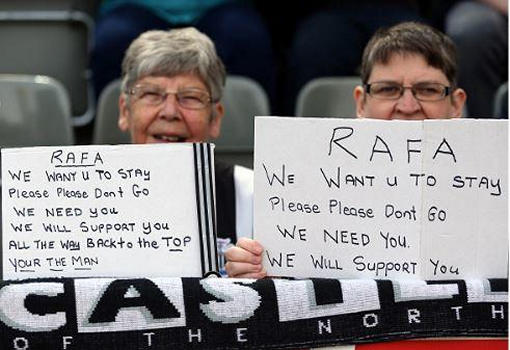 RAFA
WE WANT U TO STAY
PLEASE PLEASE DONT GO
WE NEED YOU
WE WILL SUPPORT YOU
ALL THE WAY BACK to the TOP
YOUR THE MAN
RAFA
WE WANT U TO STAY
PLEASE PLEASE DONT GO
WE NEED YOU.
WE WILL SUPPORT YOU
CASTLE
OF THE NORTH